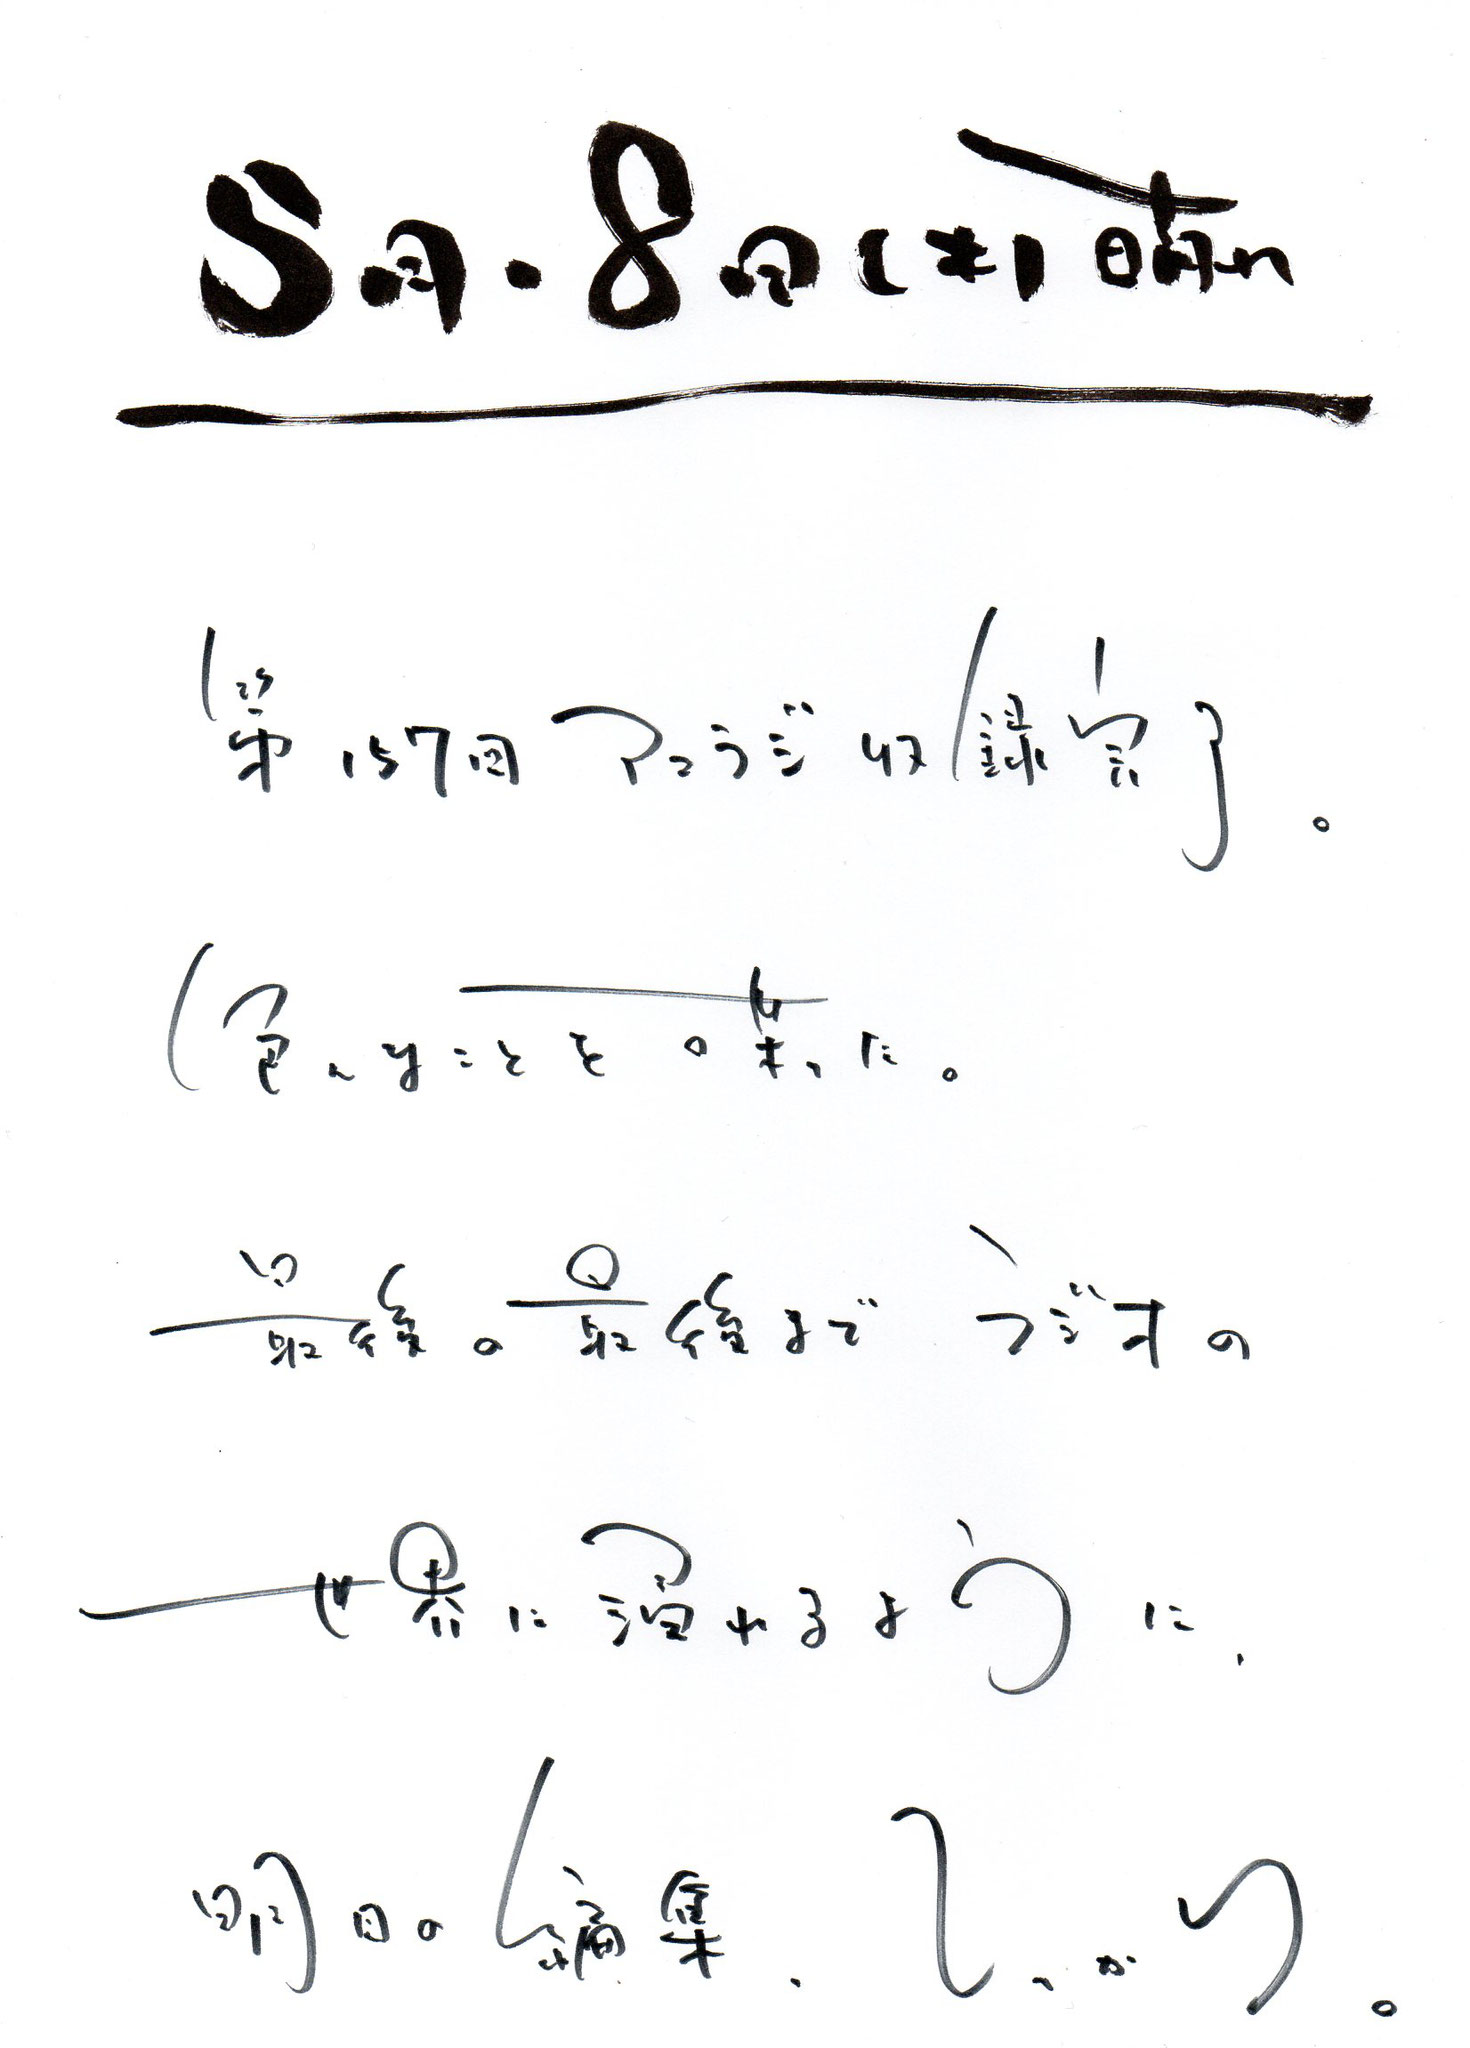 5月・8日(木)晴れ
第157回アコラジ収録完了。
色んなことを喋った。
最後の最後までラジオの
世界に浸れるように、
明日の編集、しっかり。